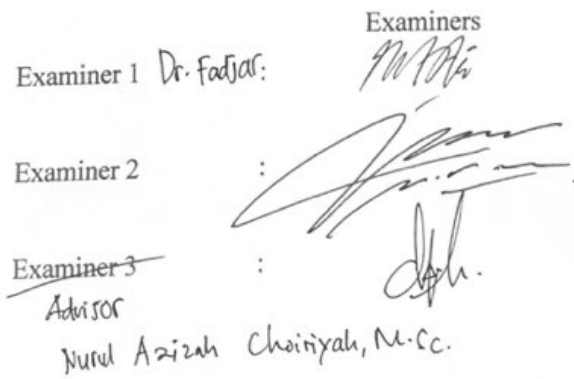 Examiners
Examiner 1 Dr. Fadjar:
Examiner 2 :
Examiner 3 :
Advisor
Nurul Azizah Choiriyah, M.Sc.